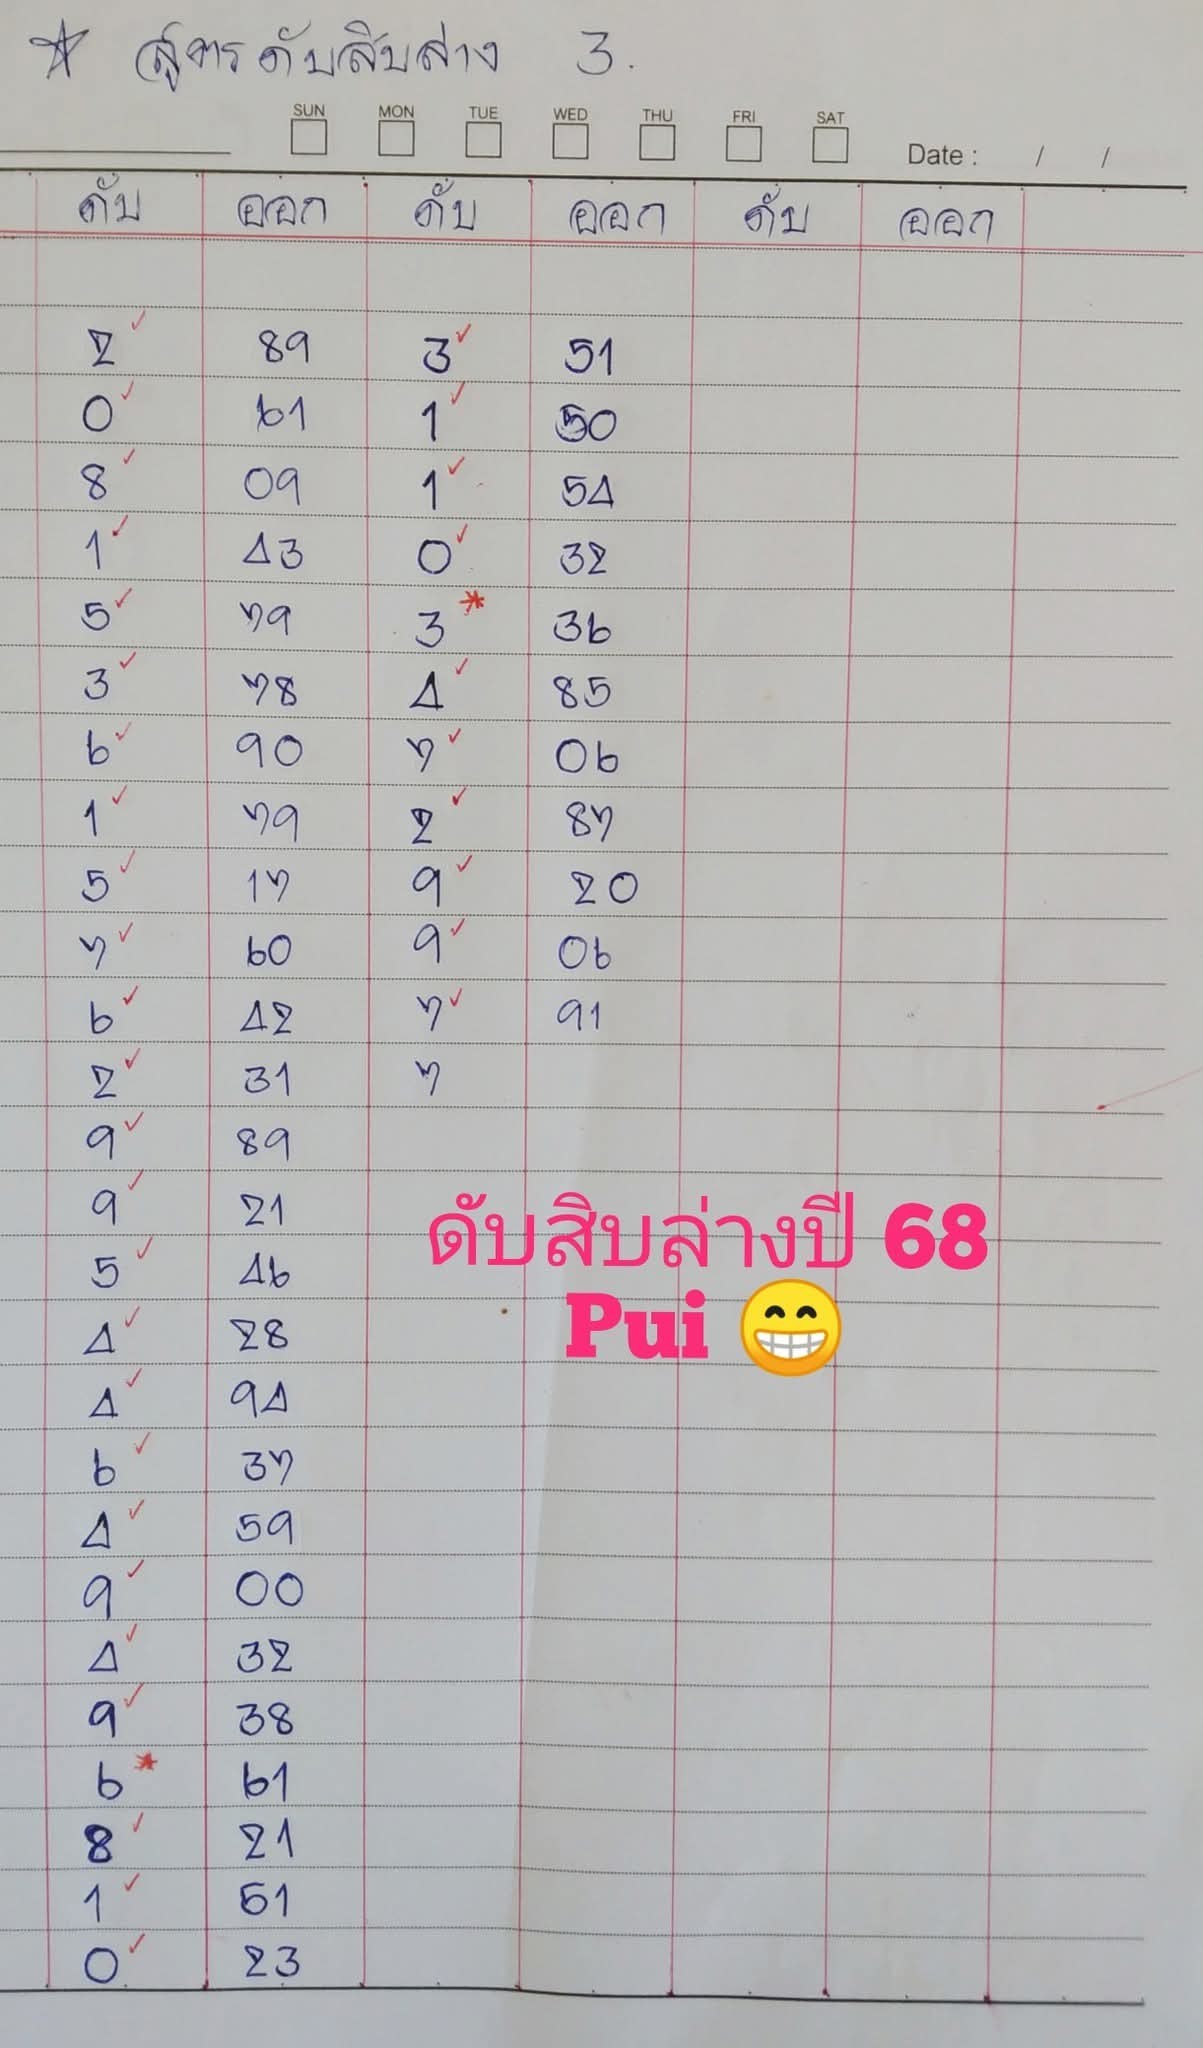 ☆ สูตรดับสิบล่าง 3.
SUN MON TUE WED THU FRI SAT Date : / /
ดับ ออก ดับ ออก ดับ ออก
2 89 3 51
0 61 1 50
8 09 1 54
1 43 0 32
5 79 3 36
3 78 4 85
6 90 7 06
1 79 2 87
5 17 9 20
7 60 9 06
6 42 7 91
2 31 7
9 89
9 21
5 46
4 28
4 94
6 37
4 59
9 00
4 32
9 38
6 61
8 21
1 51
0 23
ดับสิบล่างปี 68
Pui 😁